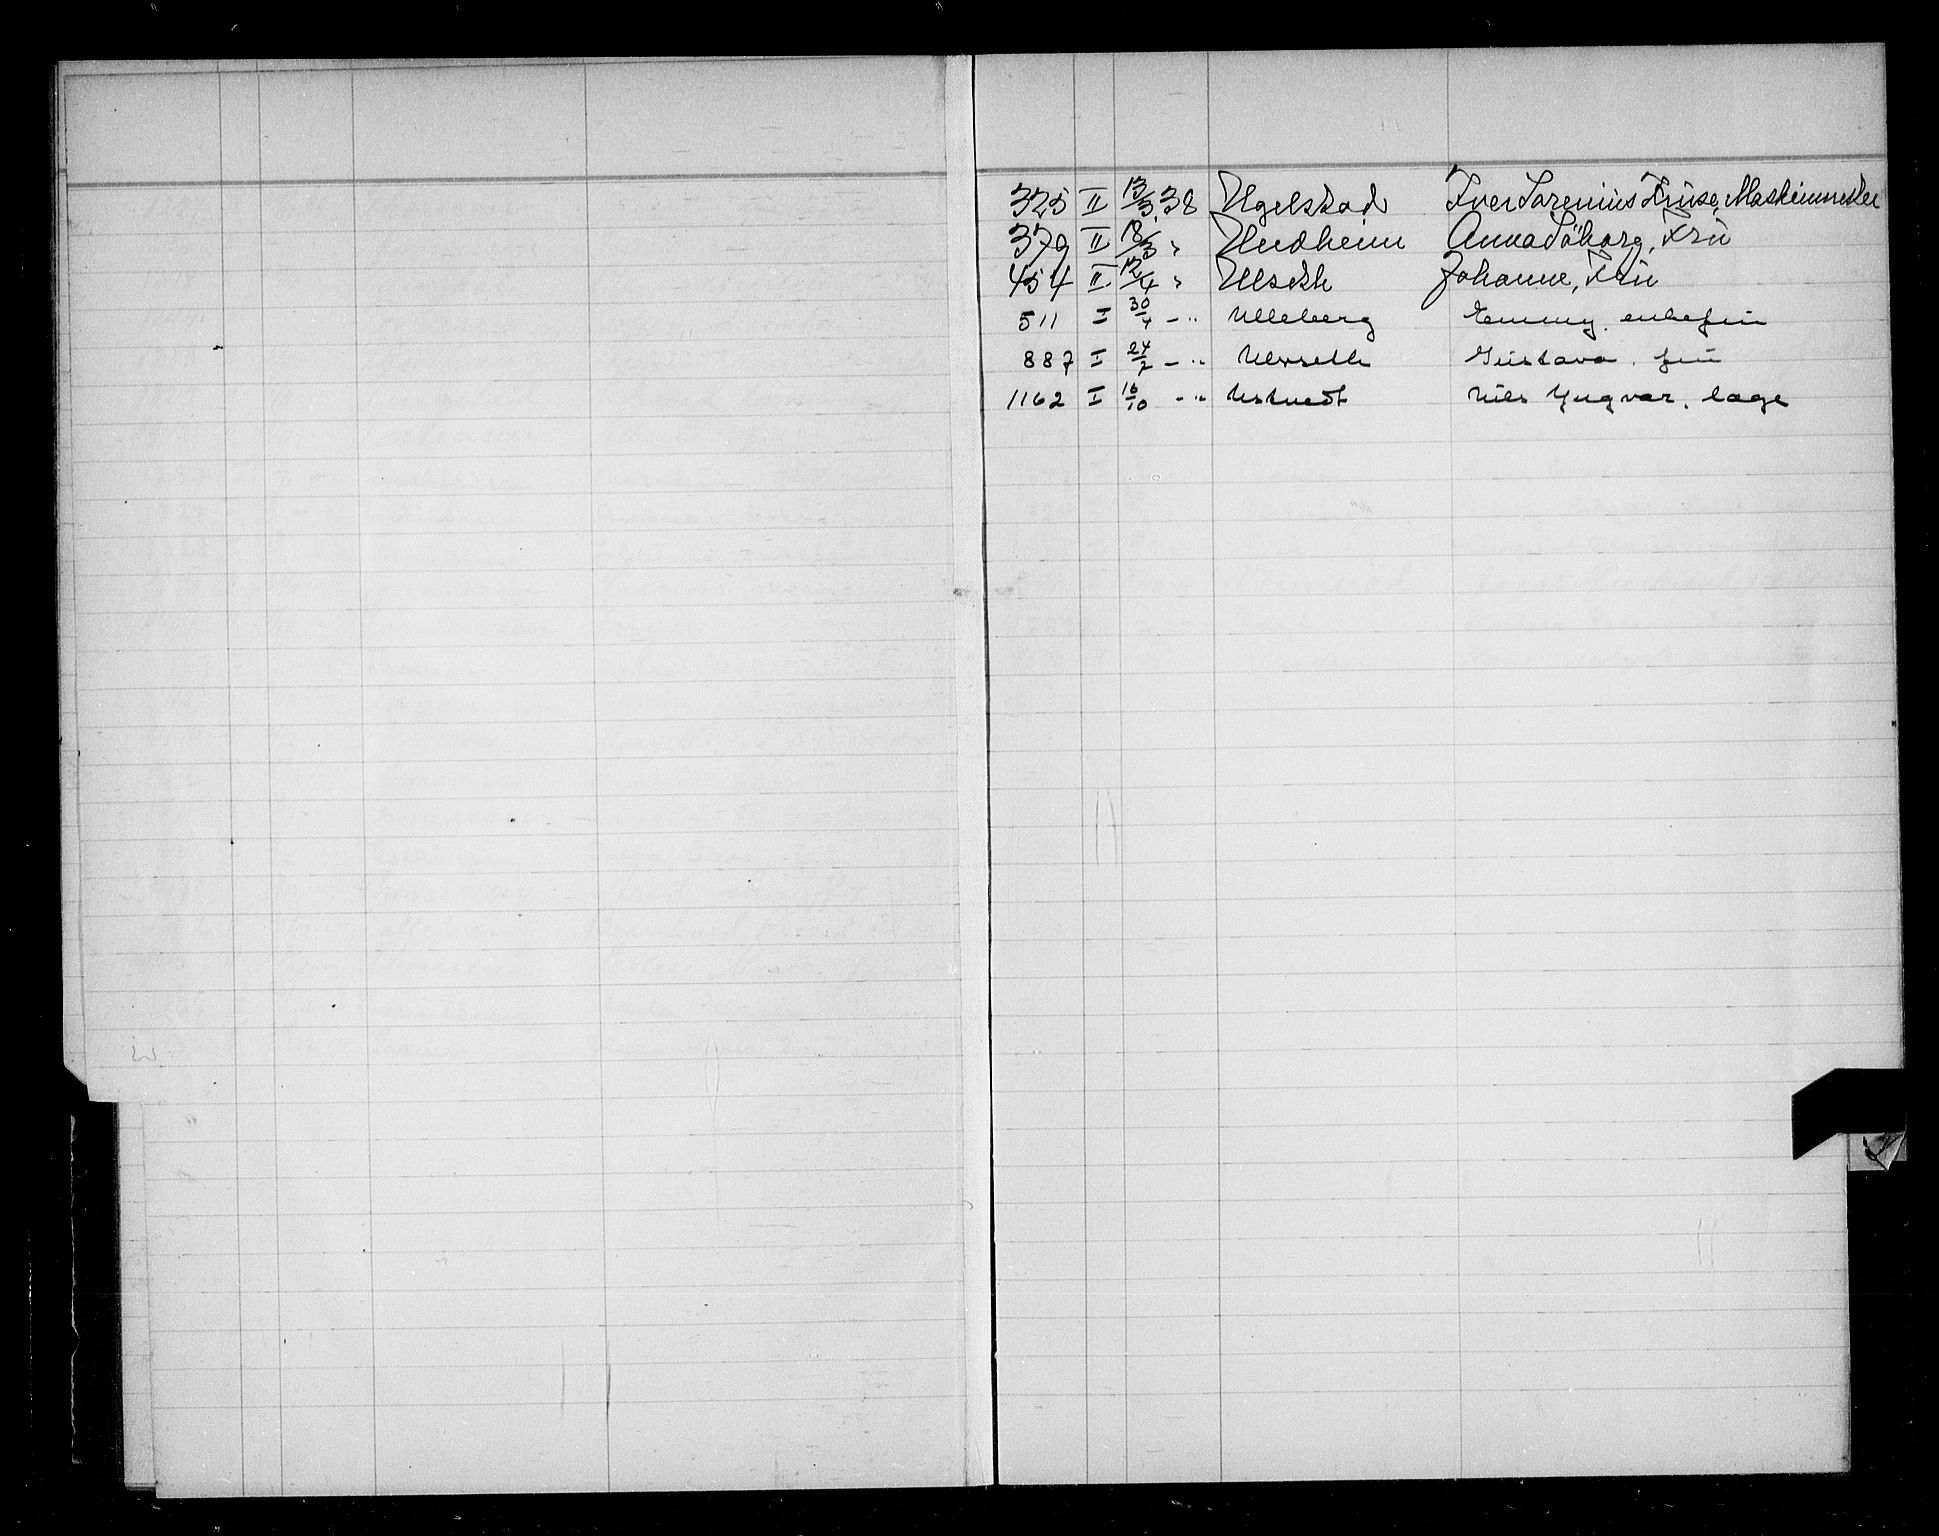 325 II 13/3.38 Ugelstad Iver Sørenius Kruse, Maskinmester
379 II 18/3 " Undheim Anna Söborg, Fru
454 II 12/4 " Ulseth Johanne, Fru
511 I 30/4 - " Ulleberg Emmy, enkefru
887 I 24/2 - " Gustava, fru
1162 I 16/10 - " Ustvedt Nils Yngvar, læge